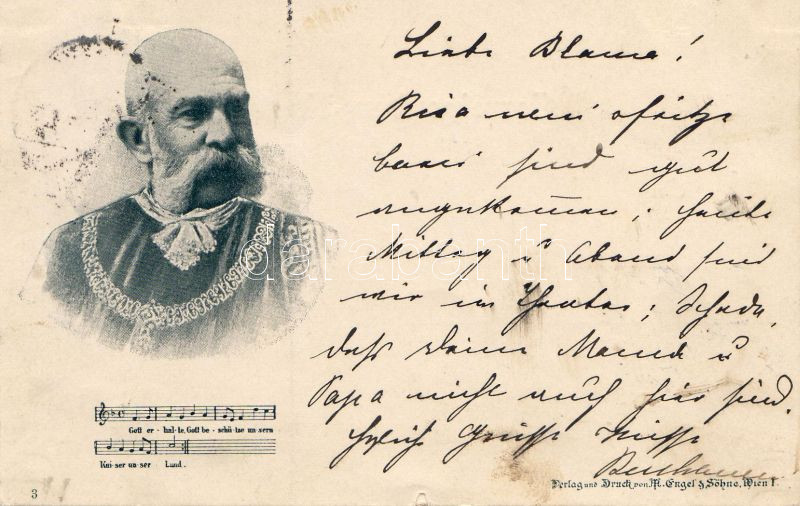 Liebe Blama!
sind gut
angekommen; heute
Mittag u Abend sind
wir im Theater; Schade,
daß Deine Mama u
Papa nicht auch hier sind.
Herzliche Grüsse
Gott er - hal - te, Gott be - schüt - ze un - sern
Kai - ser un - ser Land.
3
Verlag und Druck von M. Engel & Söhne, Wien I.
darabanth